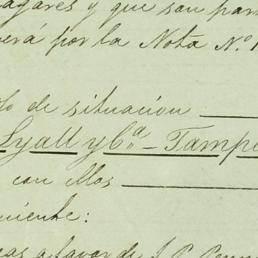 pagarés y que son par
será por la Nota N.º 1
lo de situación
Lyall y C.ª - Tampi
con Mos
niente:
a favor de J. P. Penn